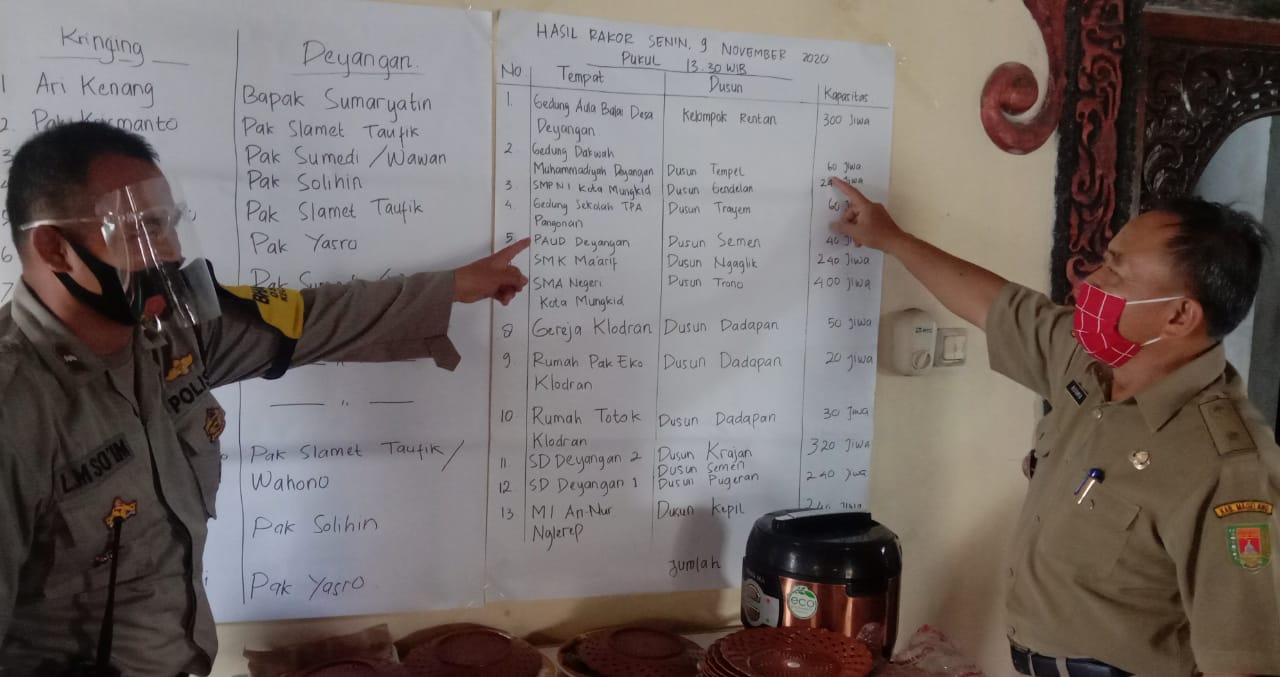 Kringing
1 Ari Kenang
2. Pak Kusmanto
3
6
7
Deyangan.
Bapak Sumaryatin
Pak Slamet Taufik
Pak Sumedi / Wawan
Pak Solihin
Pak Slamet Taufik
Pak Yasro
— " —
Pak Slamet Taufik /
Wahono
Pak Solihin
Pak Yasro
HASIL RAKOR SENIN, 9 NOVEMBER 2020
PUKUL 13.30 WIB
No Tempat Dusun Kapasitas
1. Gedung Aula Balai Desa Deyangan Kelompok Rentan 300 Jiwa
2. Gedung Dakwah
Muhammadiyah Deyangan Dusun Tempel 60 Jiwa
3. SMPN 1 Kota Mungkid Dusun Gendelan Jiwa
4. Gedung Sekolah TPA Dusun Trayem 60
Pangonan
5. PAUD Deyangan Dusun Semen 40 Jiwa
SMK Ma'arif Dusun Ngaglik 240 Jiwa
SMA Negeri Dusun Trono 400 Jiwa
Kota Mungkid
8 Gereja Klodran Dusun Dadapan 50 Jiwa
9 Rumah Pak Eko Dusun Dadapan 20 Jiwa
Klodran
10 Rumah Totok Dusun Dadapan 30 Jiwa
Klodran
11. SD Deyangan 2 Dusun Krajan 320 Jiwa
Dusun Semen
12 SD Deyangan 1 Dusun Pugeran 240 Jiwa
13 MI An-Nur Dusun Kepil 240 Jiwa
Nglerep
Jumlah
POLIS
L.M SO'IM
eco
KAB. MAGELANG